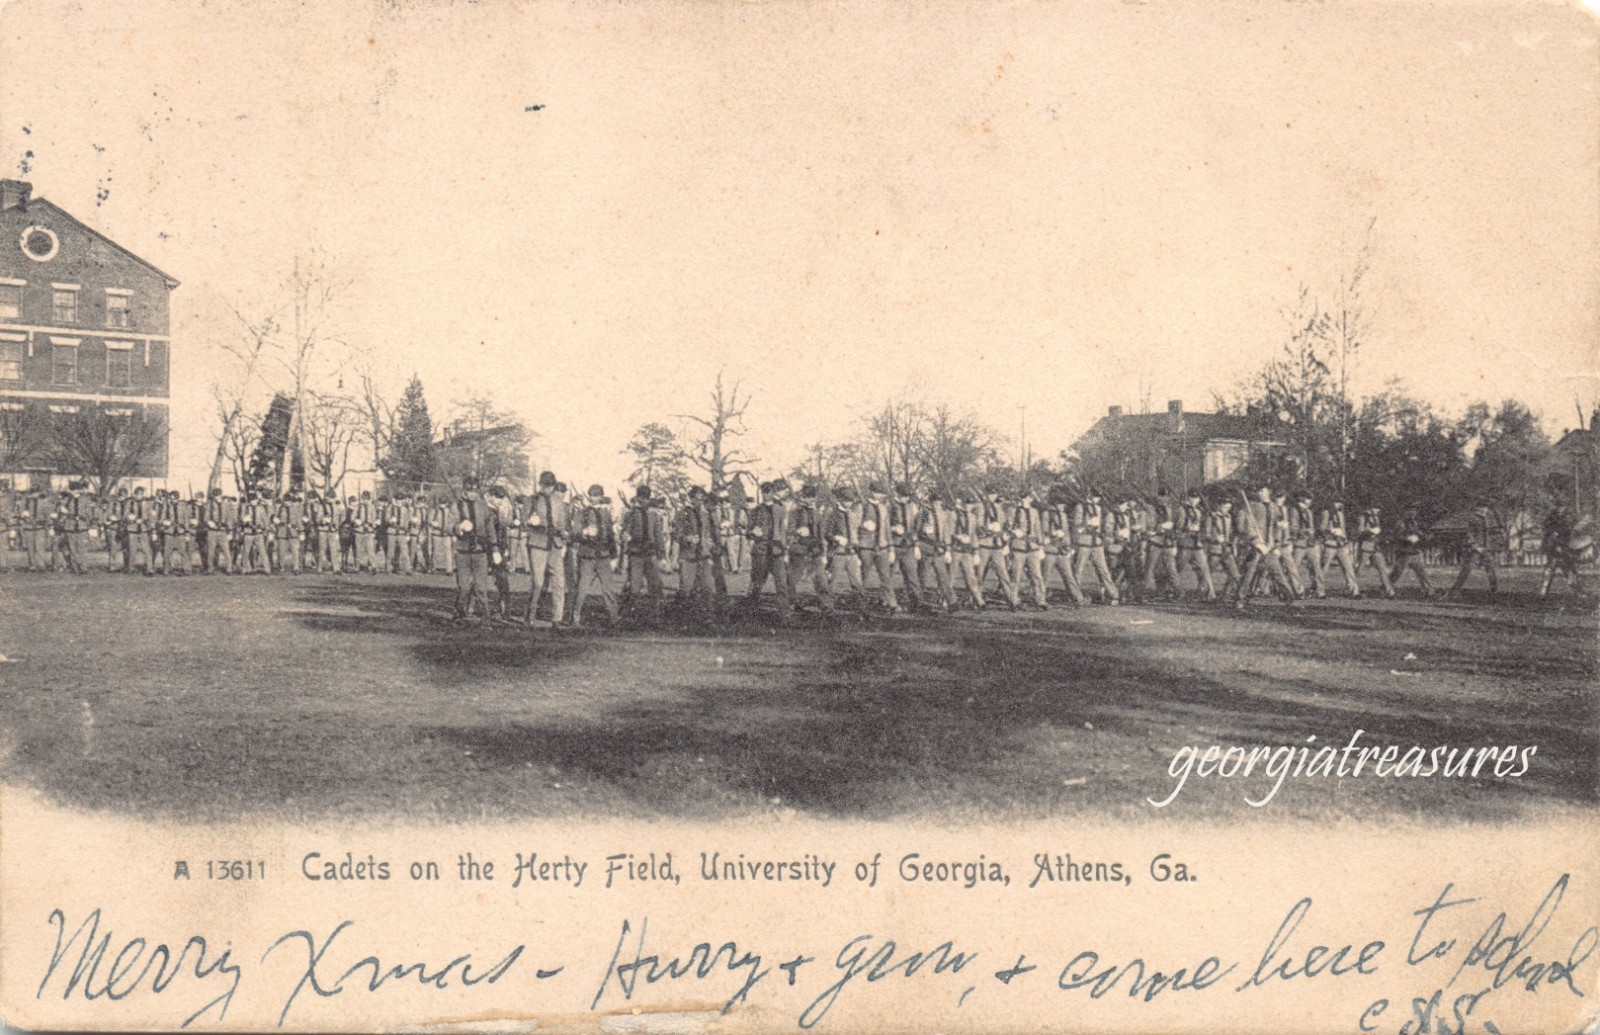 georgiatreasures
A 13611 Cadets on the Herty Field, University of Georgia, Athens, Ga.
Merry Xmas - Hurry + grow, + come here to school